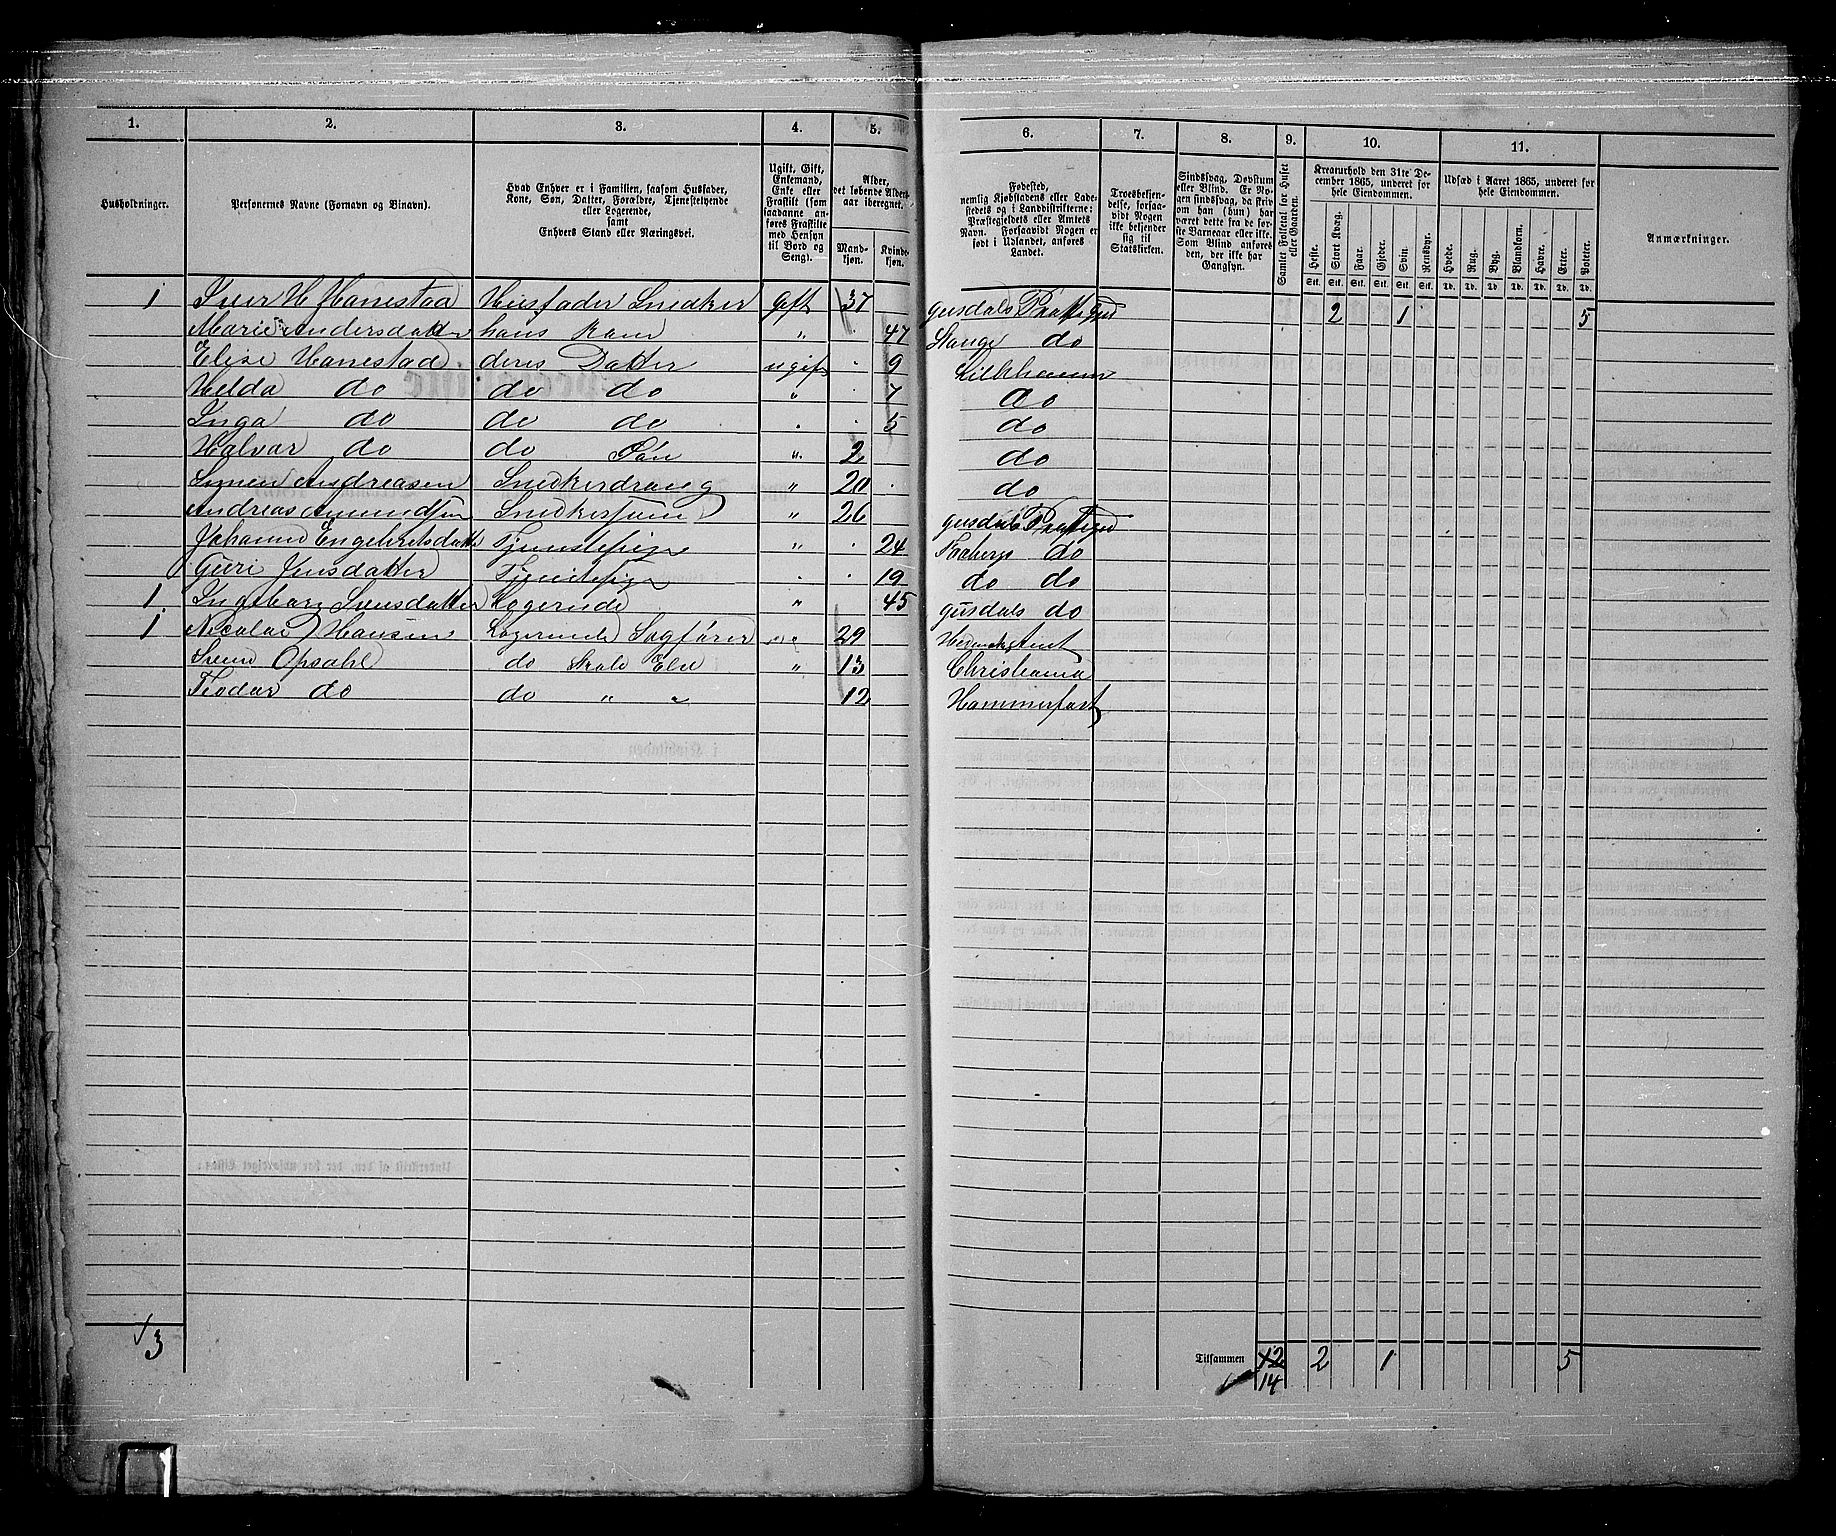 1. 2. 3. 4. 5. 6. 7. 8. 9. 10. 11.
Husholdninger.
Personernes Navne (Fornavn og Binavn).
Hvad Enhver er i Familien, saasom Husfader,
Kone, Søn, Datter, Forældre, Tjenestetyende
eller Logerende,
samt
Enhvers Stand eller Næringsvei.
Ugift, Gift,
Enkemand,
Enke eller
Fraskilt (som
saadanne an-
føres Fraskilte
med Hensyn
til Bord og
Seng).
Alder,
det løbende Alders-
aar iberegnet.
Mand-
kjøn.
Kvinde-
kjøn.
Fødested,
nemlig Kjøbstadens eller Lade-
stedets og i Landdistrikterne:
Præstegjeldets eller Amtets
Navn. Forsaavidt Nogen er
født i Udlandet, anføres
Landet.
Troesbekjen-
delse, forsaa-
vidt Nogen
ikke bekjender
sig til
Statskirken.
Sindssvag, Døvstum
eller Blind. Er No-
gen sindssvag, da skriv
om han (hun) har
været dette fra de før-
ste Barneaar eller ikke.
Som Blind anføres
den, der ikke har
Gangsyn.
Samlet Folketal for Huset
eller Gaarden.
Kreaturhold den 31te De-
cember 1865, underet for
hele Eiendommen.
Heste. Stort Kvæg. Faar. Gjeder. Svin. Rensdyr.
Stk. Stk. Stk. Stk. Stk. Stk.
Udsæd i Aaret 1865, underet for
hele Eiendommen.
Hvede. Rug. Byg. Blandkorn. Havre. Erter. Poteter.
Td. Td. Td. Td. Td. Td. Td.
Anmærkninger.
1 Iver H Hanestad Husfader Snedker Gift 37 Gusdals 2 1 5
Marie Andersdatter hans Kone " 47 Stange do
Elise Hanestad deres Datter ugift 9 Lillehamer
Helda do do do " 7 do
Inga do do do " 5 do
Halvar do do Søn " 2 do
Simen Andreasen Snedkerdreng " 20 do
Andreas Amundsen " 26 Gusdals
Engebretsdatter Tjenestepige " 24 Faabergs do
Guri Jensdatter Tjenestepige " 19 do do
1 Ingeborg Svensdatter Logerende " 45 Gusdals do
1 Nicolai Hansen Logerende Sagfører " 29
Svend Opsahl do Skole Elev " 13 Christiania
Teodor do do " " 12 Hammerfest
3
Tilsammen 12 2 1 5
14